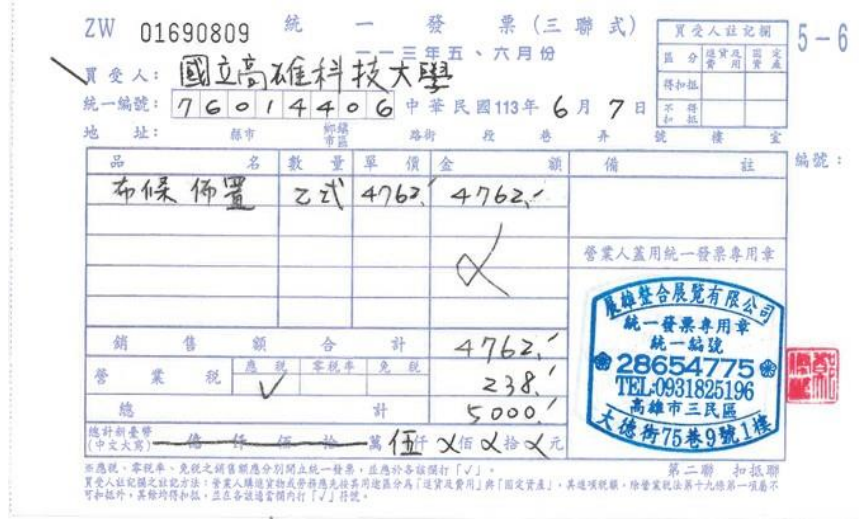 ZW 01690809 統一發票(三聯式)
一一三年五、六月份
5-6
買受人註記欄
區分 進貨及費用 固定資產
得扣抵
不得扣抵
買受人: 國立高雄科技大學
統一編號: 76014406 中華民國113年6月7日
地址: 縣市 鄉鎮市區 路街 段 巷 弄 號 樓 室
編號:
品名 數量 單價 金額 備註
布條佈置 乙式 4762.- 4762.-
營業人蓋用統一發票專用章
銷售額合計 4762.-
營業稅 應稅 ✓ 零稅率 免稅 238.-
總計 5000.-
總計新臺幣(中文大寫) 億仟佰拾萬伍仟X佰X拾X元
展雄整合展覽有限公司
統一發票專用章
統一編號
28654775
TEL:0931825196
高雄市三民區
大德街75巷9號1樓
第二聯 扣抵聯
※應稅、零稅率、免稅之銷售額應分別開立統一發票,並應於各該欄打「✓」。
買受人註記欄之註記方法:營業人購進貨物或勞務應先按其用途區分為「進貨及費用」與「固定資產」,其進項稅額,除營業稅法第十九條第一項屬不
可扣抵外,其餘均得扣抵,並在各該適當欄內打「✓」符號。